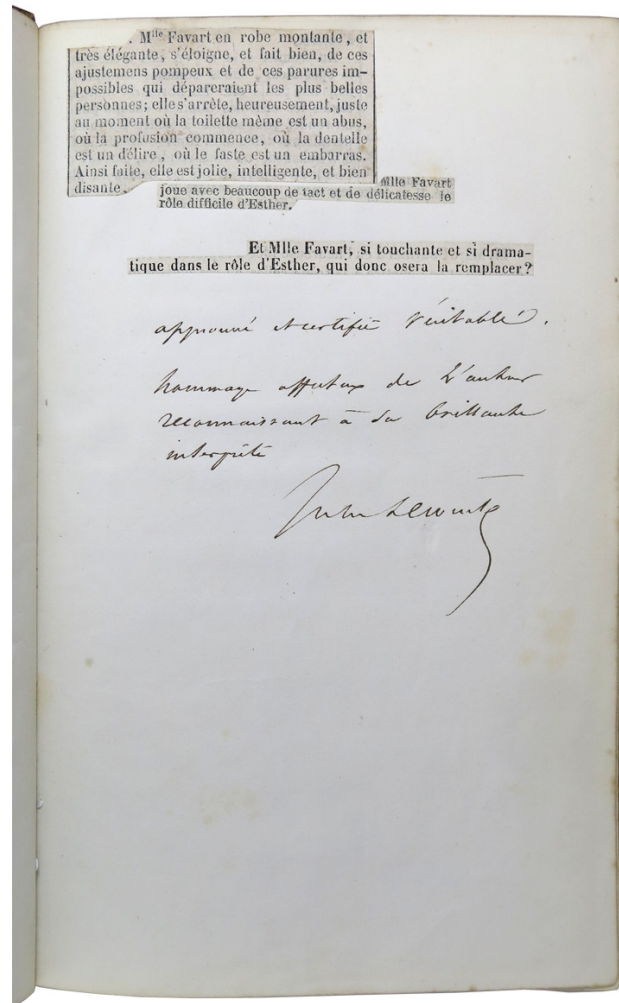 . Mlle Favart en robe montante, et
très élégante, s'éloigne, et fait bien, de ces
ajustemens pompeux et de ces parures im-
possibles qui dépareraient les plus belles
personnes; elle s'arrête, heureusement, juste
au moment où la toilette même est un abus,
où la profusion commence, où la dentelle
est un délire, où le faste est un embarras.
Ainsi faite, elle est jolie, intelligente, et bien
disante.
Mlle Favart
joue avec beaucoup de tact et de délicatesse le
rôle difficile d'Esther.
Et Mlle Favart, si touchante et si drama-
tique dans le rôle d'Esther, qui donc osera la remplacer?
approuvé et certifié véritable.
hommage affectueux de L'auteur
reconnaissant à sa brillante
interprète